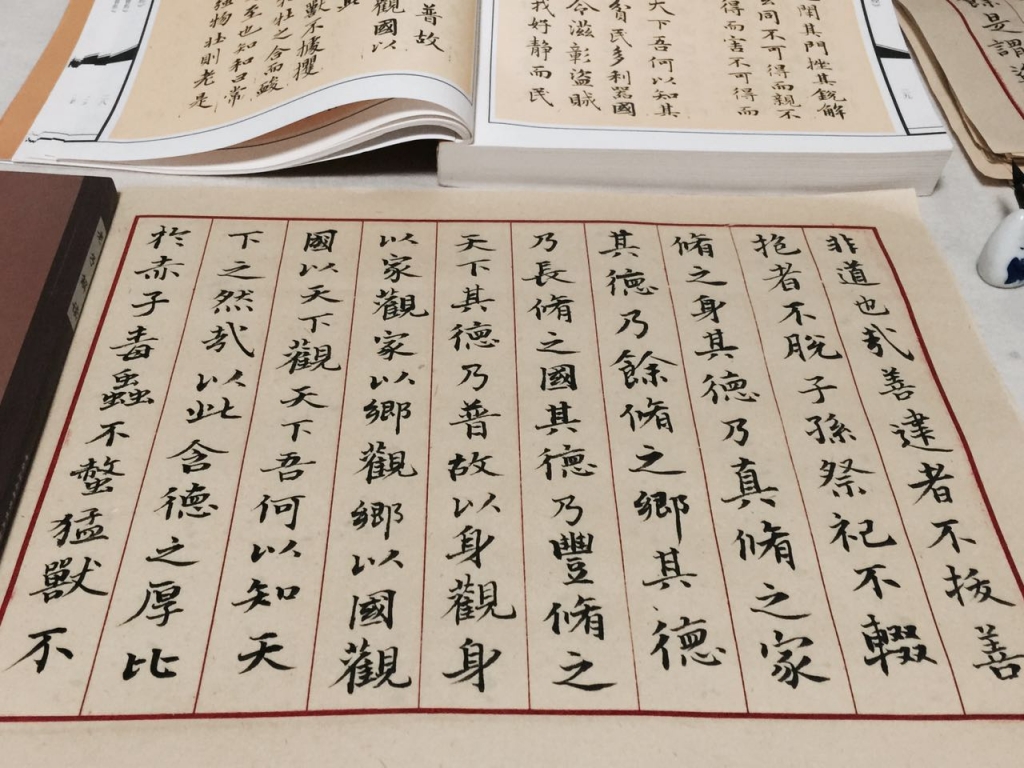 是謂
閉其門挫其銳解
同不可得而親不
得而害不可得而
天下吾何以知其
貧民多利器國
令滋彰盜賊
我好静而民
普故
觀國以
獸不據攫
壯之合而
至也知和曰常
物壯則老是
非道也哉善達者不拔善
抱者不脫子孫祭祀不輟
脩之身其德乃真脩之家
其德乃餘脩之鄉其德
乃長脩之國其德乃豐脩之
天下其德乃普故以身觀身
以家觀家以鄉觀鄉以國觀
國以天下觀天下吾何以知天
下之然哉以此含德之厚比
於赤子毒蟲不螫猛獸不